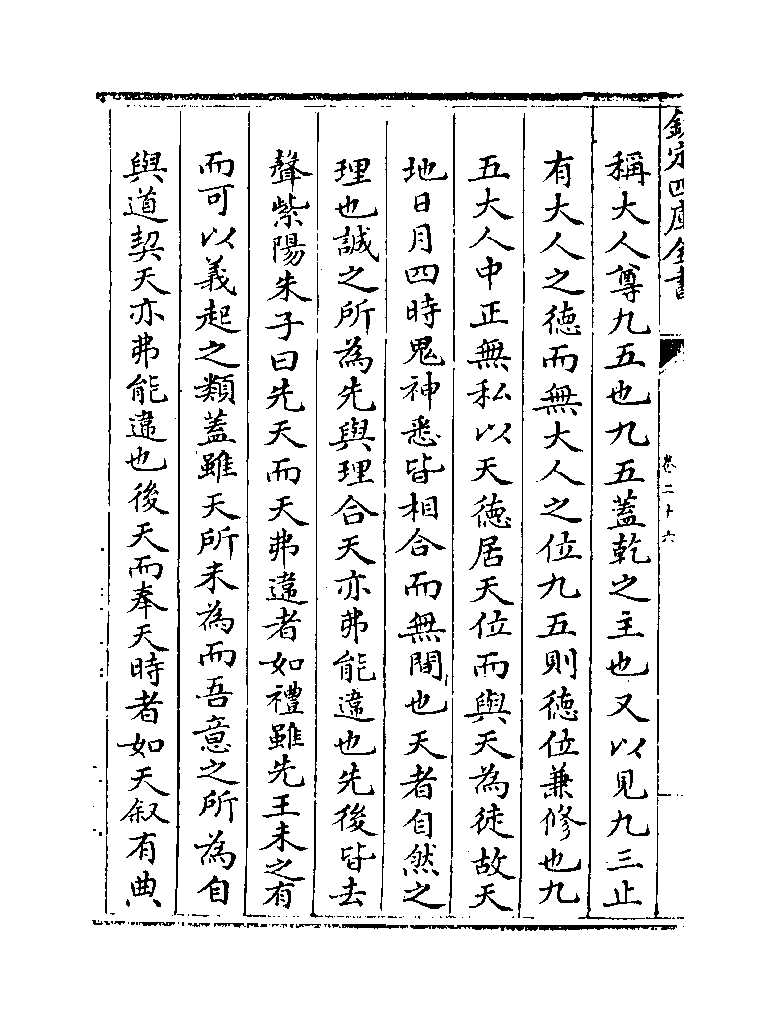 欽定四庫全書
卷二十六
稱大人尊九五也九五蓋乾之主也又以見九三止
有大人之德而無大人之位九五則德位兼修也九
五大人中正無私以天德居天位而與天為徒故天
地日月四時鬼神悉皆相合而無間也天者自然之
理也誠之所為先與理合天亦弗能違也先後皆去
聲紫陽朱子曰先天而天弗違者如禮雖先王未之有
而可以義起之類蓋雖天所未為而吾意之所為自
與道契天亦弗能違也後天而奉天時者如天叙有典